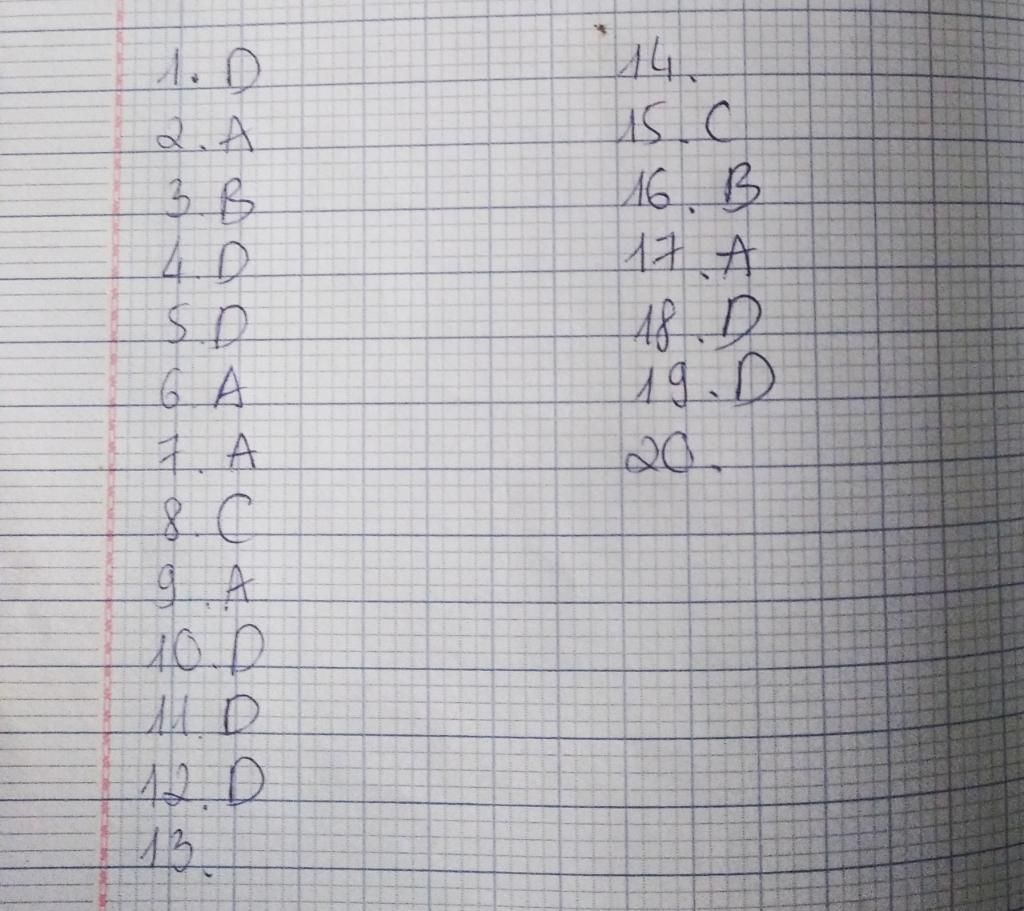 1. D
2. A
3. B
4. D
5. D
6 A
7. A
8. C
9. A
10. D
11. D
12. D
13.
14.
15. C
16. B
17. A
18. D
19. D
20.